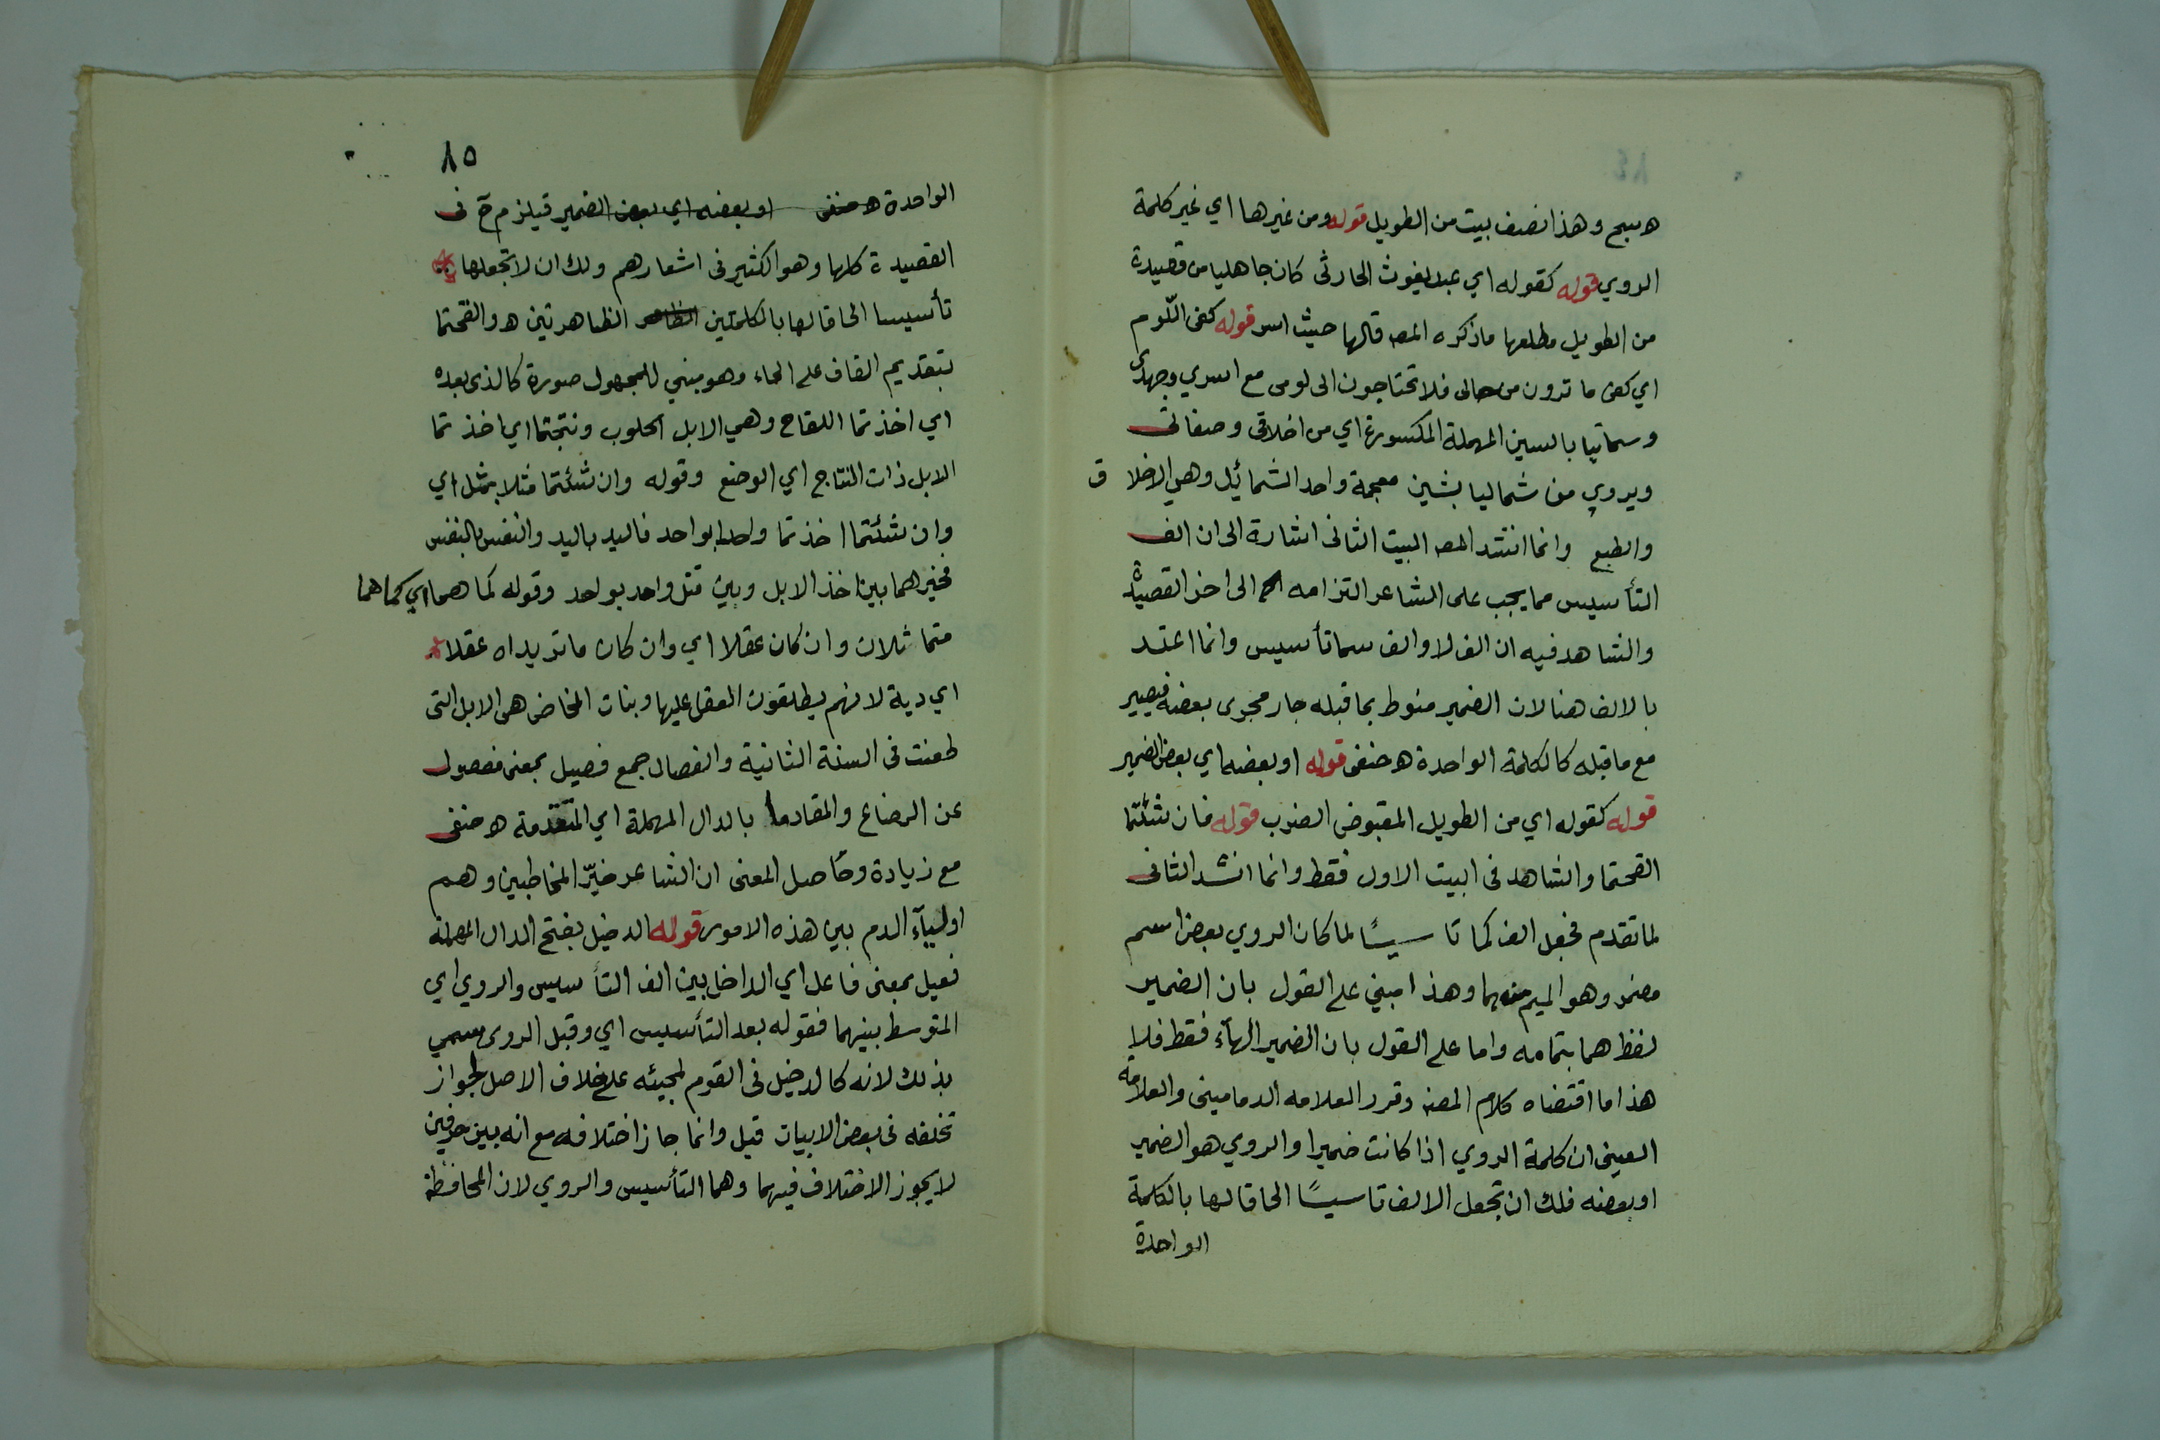 هسبج وهذا نصف بيت من الطويل قوله ومن غيرها اي غير كلمة
الروي قوله كقوله اي عبد يغوث الحارثى كان جاهليا من قصيدة
من الطويل مطلعها ماذكره المصـ قالها حيث اسر قوله كفى اللّوم
اي كفى ما ترون من حالى فلا تحتاجون الى لومى مع اسري وجهدى
وسماتيا بالسين المهملة المكسورة اي من اخلاقى وصفاتى
ويروي من شماليا بشين معجمة واحد الشمائيل وهي الاخلاق
والطبع وانما انشد المصـ البيت الثانى اشارة الى ان الف
التأسيس مما يجب على الشاعر التزامه الى اخر القصيدة
والشاهد فيه ان الف لا والف سما تأسيس وانما اعتد
بالالف هنا لان الضمير منوط بما قبله جار مجرى بعضه فيصير
مع ماقبله كالكلمة الواحدة هـ حنفى قوله او بعضه اي بعض الضمير
قوله كقوله اي من الطويل المقبوض الضرب قوله فان شئتما
القحتما والشاهد فى البيت الاول فقط وانما انشد الثانى
لما تقدم فجعل الف كما تا سيسًا لما كان الروي بعض اسم
مضمر وهو الميم منهما وهذا مبني على القول بان الضمير
لفظ هما بتمامه واما على القول بان الضمير الهآء فقط فلا
هذا ما اقتضاه كلام المصنـ وقرر العلامه الدمامينى والعلامة
العينى ان كلمة الروي اذا كانت ضميرا والروي هو الضمير
او بعضه فلك ان تجعل الالف تاسيسًا الحاقا لها بالكلمة
الواحدة
٨٥
الواحدة هـ حنفى او بعضه اي بعض الضمير فيلزم ح فى
القصيدة كلها وهو الكثير فى اشعارهم ولك ان لا تجعلها
تأسيسا الحاقا لها بالكلمتين الظاهر الظاهرتين هـ والقحتما
بتقديم القاف على الحاء وهو مبني للمجهول صورة كالذى بعده
اي اخذتما اللقاح وهي الابل الحلوب ونتجتما اي اخذتما
الابل ذات النتاج اي الوضع وقوله وان شئتما مثلا بمثل اي
وان شئتما اخذتما واحدا بواحد فاليد باليد والنفس بالنفس
فخيرهما بين اخذ الابل وبين قتل واحد بواحد وقوله كما هما اي كما هما
متماثلان وان كان عقلا اي وان كان ما تريداه عقلا
اي دية لانهم يطلقون العقل عليها وبنات المخاض هى الابل التى
طعنت فى السنة الثانية والفصال جمع فصيل بمعنى مفصول
عن الرضاع والمقادما بالدال المهملة اي المتقدمة هـ حنفى
مع زيادة وحاصل المعنى ان الشاعر خيّر المخاطبين وهم
اوليآء الدم بين هذه الامور قوله الدخيل بفتح الدال المهملة
فعيل بمعنى فاعل اي الداخل بين الف التأسيس والروي اي
المتوسط بينهما فقوله بعد التأسيس اي وقبل الروى سمي
بذلك لانه كالدخيل فى القوم لمجيئه على خلاف الاصل لجواز
تخلفه فى بعض الابيات قيل وانما جاز اختلافه مع انه بين حرفين
لايجوز الاختلاف فيهما وهما التأسيس والروي لان المحافظة